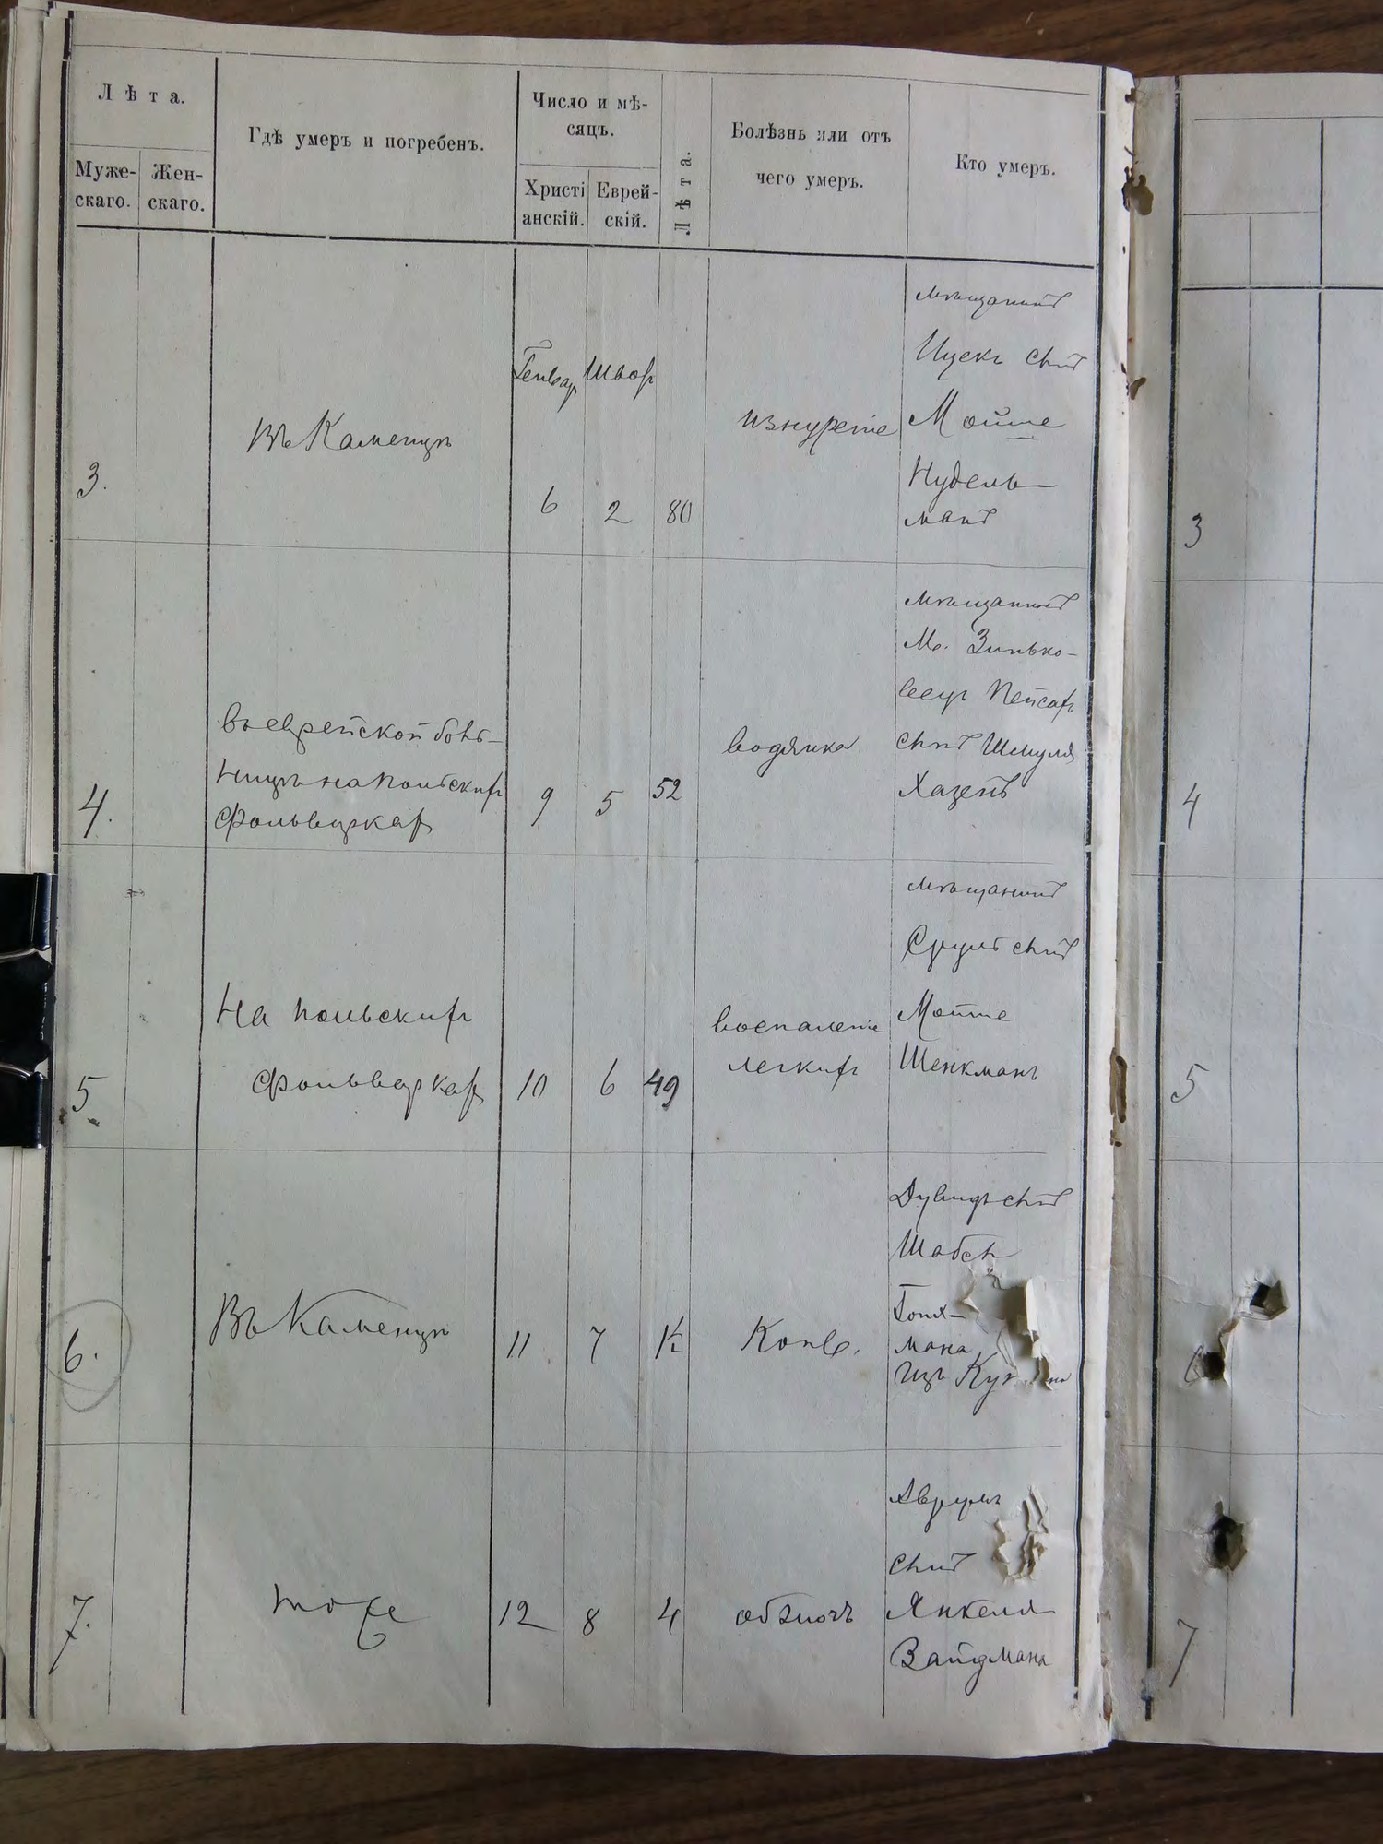 Лѣта.
Муже-
скаго.
Жен-
скаго.
Гдѣ умеръ и погребенъ.
Число и мѣ-
сяцъ.
Христі
анскій.
Еврей-
скій.
Лѣта.
Болѣзнь или отъ
чего умеръ.
Кто умеръ.
3.
Въ Каменцѣ
Генвар
6
2
80
изнуреніе
мѣщанинъ
Ицекъ сынъ
Мойше
Нудель-
манъ
3
4.
въ еврейской боль-
ницѣ на Польскихъ
фольваркахъ
9
5
52
водянка
мѣщанинъ
М. Зинько-
вецъ Пейсахъ
сынъ Шмуля
Хазенъ
4
5.
На Польскихъ
фольваркахъ
10
6
49
воспаленіе
легкихъ
мѣщанинъ
Сруль сынъ
Мойше
Шенкманъ
5
6.
Въ Каменцѣ
11
7
½
Конв.
Дувидъ сынъ
Гол-
мана
изъ
6
7.
тоже
12
8
4
Аврумъ
сынъ
Янкеля
Вайдмана
7